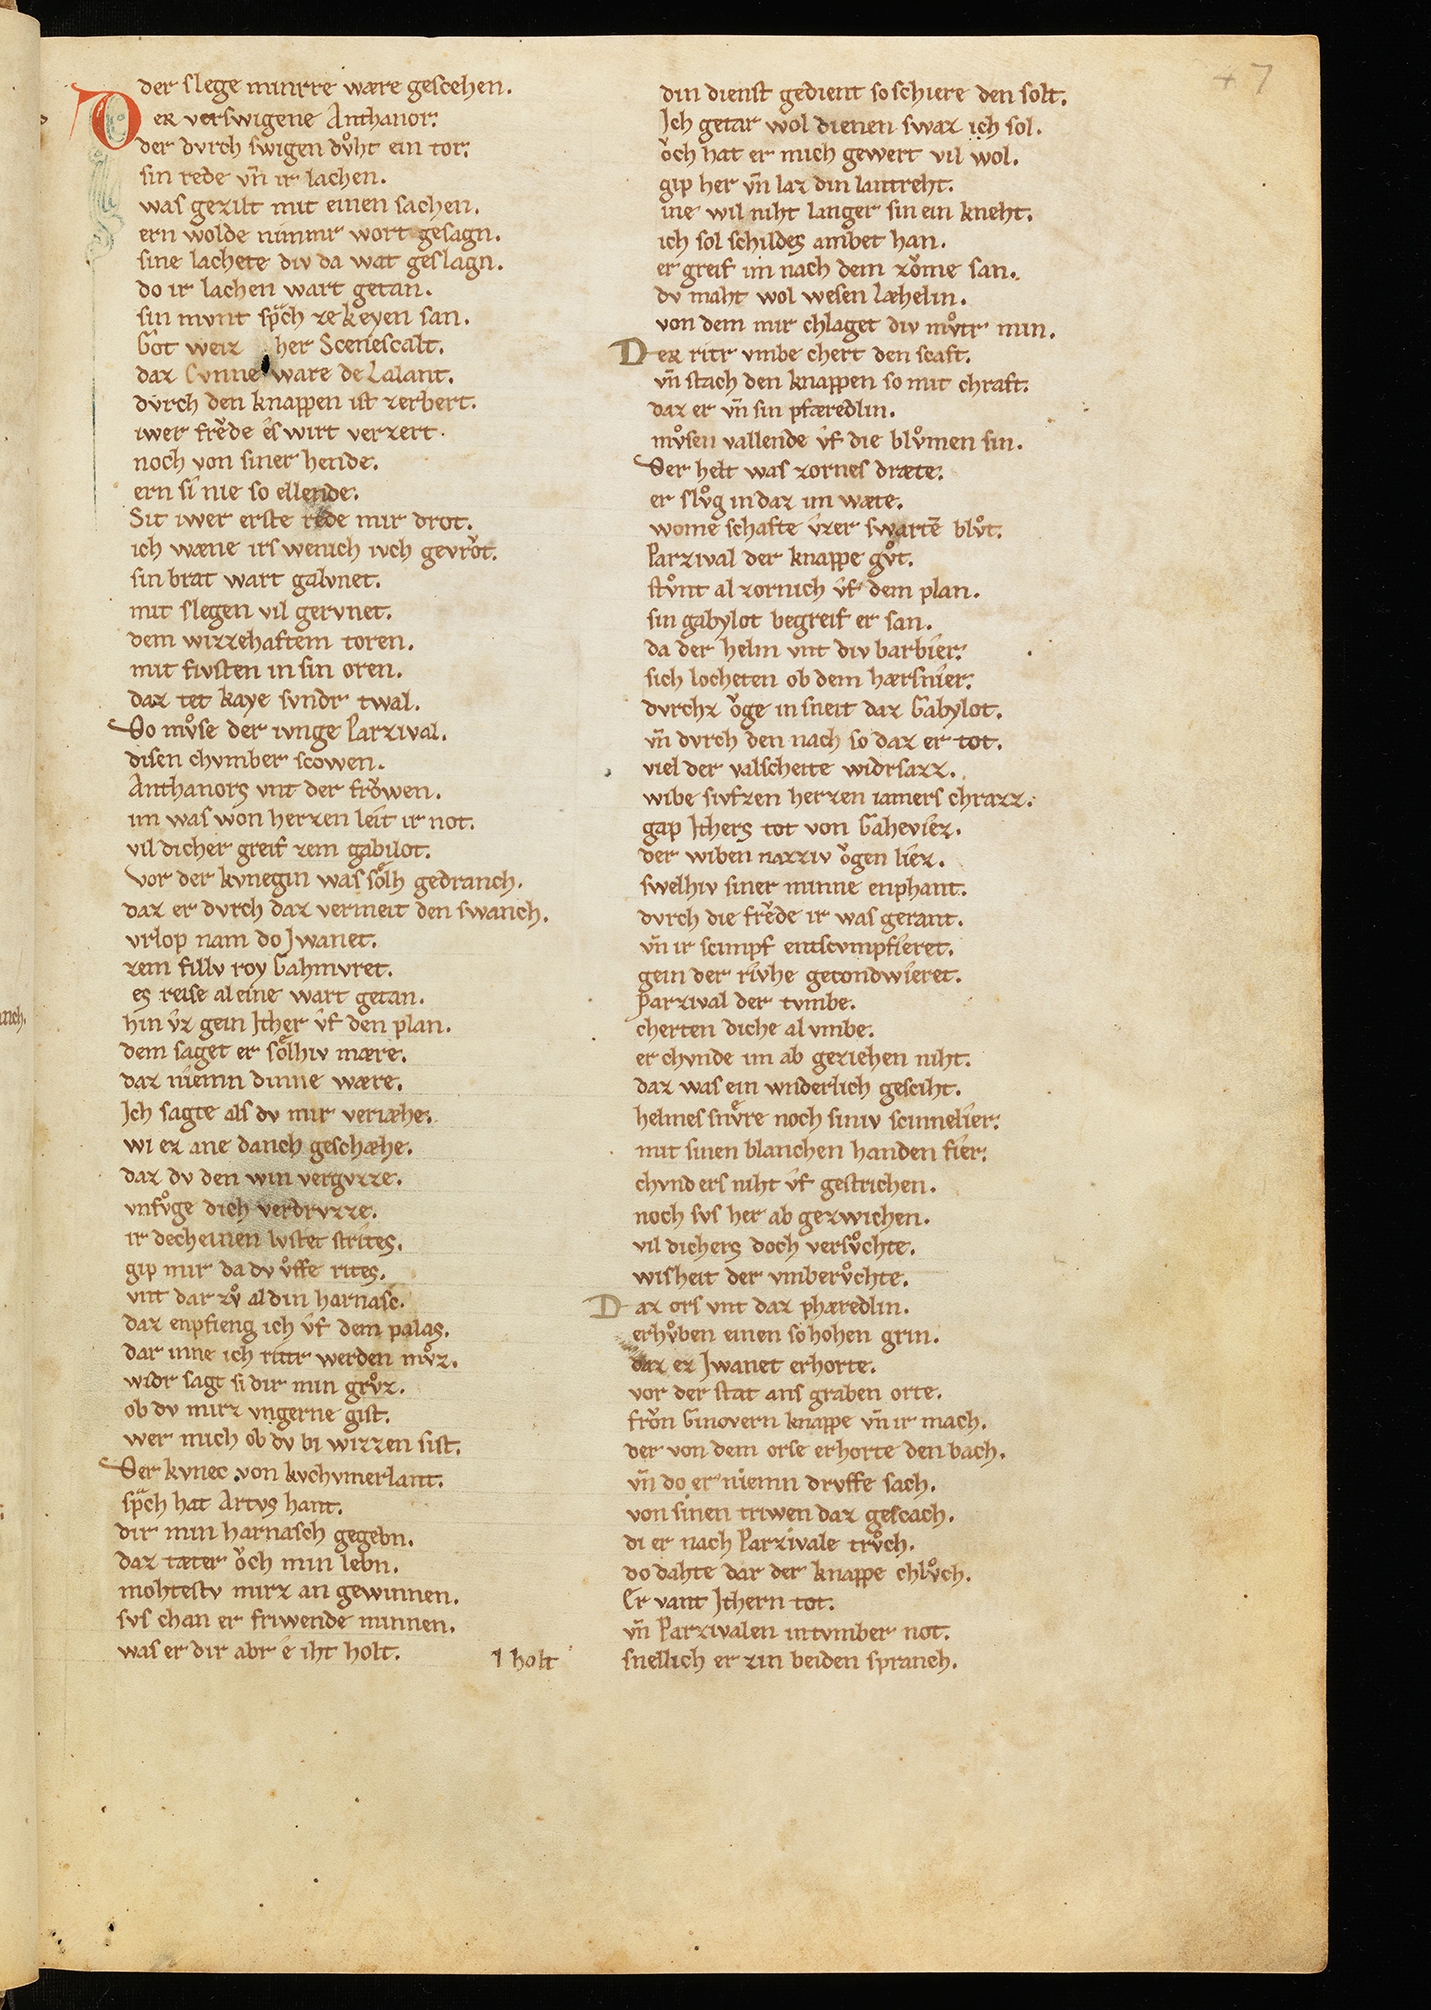 der slege minrre wære gescehen.
Der verswigene Anthanor.
der dvrch swigen dv̊ht ein tor.
sin rede vn̄ ir lachen.
was gezilt mit einen sachen.
ern wolde nimmr wort gesagn.
sine lachete div da wat geslagn.
do ir lachen wart getan.
sin mvnt sp̄ch ze keyen san.
Got weiz her Scenescalt.
daz Cvnne ware de Lalant.
dvrch den knappen ist zerbert.
iwer frev̊de es wirt verzert.
noch von siner hende.
ern si nie so ellende.
Sit iwer erste rede mir drot.
ich wæne irs wenich ivch gevrȏt.
sin brat wart galvnet.
mit slegen vil gervnet.
dem wizzehaftem toren.
mit fivsten in sin oren.
daz tet kaye svndr twal.
Do mv̊se der ivnge Parzival.
disen chvmber scowen.
Anthanors vnt der frȏwen.
im was von herzen leit ir not.
vil dicher greif zem gabilot.
vor der kvnegin was sȏlh gedranch.
daz er dvrch daz vermeit den swanch.
vrlop nam do Jwanet.
zem fillv roy Gahmvret.
es reise aleine wart getan.
hin v̂z gein Jther v̂f den plan.
dem saget er sȏlhiv mære.
daz niemn dinne wære.
Ich sagte als dv mir veriæhe.
wi ez ane danch geschæhe.
daz dv den win vergvzze.
vnfv̊ge dich verdrvzze.
ir decheinen lvstet strites.
gip mir da dv v̊ffe rites.
vnt dar zv̊ al din harnasc.
daz enpfieng ich v̂f dem palas.
dar inne ich rittr werden mv̊z.
widr sagt si dir min grv̊z.
ob dv mirz vngerne gist.
wer mich ob dv bi wizzen sist.
Der kvnec von kvchvmerlant.
sp̄ch hat Artvs hant.
dir min harnasch gegebn.
daz tæter ȏch min lebn.
mohtestv mirz an gewinnen.
svs chan er friwende minnen.
was er dir abr ê iht holt.
holt
din dienst gedient so schiere den solt.
Ich getar wol dienen swaz ich sol.
ȏch hat er mich gewert vil wol.
gip her vn̄ laz din lantreht.
ine wil niht langer sin ein kneht.
ich sol schildes ambet han.
er greif im nach dem zȏme san.
dv maht wol wesen Læhelin.
von dem mir chlaget div mv̊tr min.
Der ritr vmbe chert den scaft.
vn̄ stach den knappen so mit chraft.
daz er vn̄ sin pfæredlin.
mv̊sen vallende v̂f die blv̊men sin.
Der helt was zornes dræte.
er slv̊g in daz im wæte.
vvome schafte v̂zer swartē blv̊t.
Parzival der knappe gv̊t.
stv̊nt al zornich v̂f dem plan.
sin gabylot begreif er san.
da der helm vnt div barbier.
sich locheten ob dem hærsnier.
dvrchz ȏge in sneit daz Gabylot.
vn̄ dvrch den nach so daz er tot.
viel der valscheite widrsazz.
wibe sivfzen herzen iamers chrazz.
gap Jthers tot von Gaheviez.
der wiben nazziv ȏgen liez.
swelhiv siner minne enphant.
dvrch die frev̊de ir was gerant.
vn̄ ir scimpf entscvmpfieret.
gein der rivhe gecondwieret.
Parzival der tvmbe.
cherten diche al vmbe.
er chvnde im ab geziehen niht.
daz was ein wnderlich gesciht.
helmes snv̊re noch siniv scinnelier.
mit sinen blanchen handen fier.
chvnd ers niht v̂f gestrichen.
noch svs her ab gezwichen.
vil dichers doch versv̊chte.
wisheit der vmberv̊chte.
Daz ors vnt daz phæredlin.
erhv̊ben einen so hohen grin.
daz ez Jwanet erhorte.
vor der stat ans graben orte.
frȏn Ginovern knappe vn̄ ir mach.
der von dem orse erhorte den bach.
vn̄ do er niemn drvffe sach.
von sinen triwen daz gescach.
di er nach Parzivale trv̊ch.
do dahte dar der knappe chlv̊ch.
Er vant Jthern tot.
vn̄ Parzivalen in tvmber not.
snellich er zin beiden spranch.